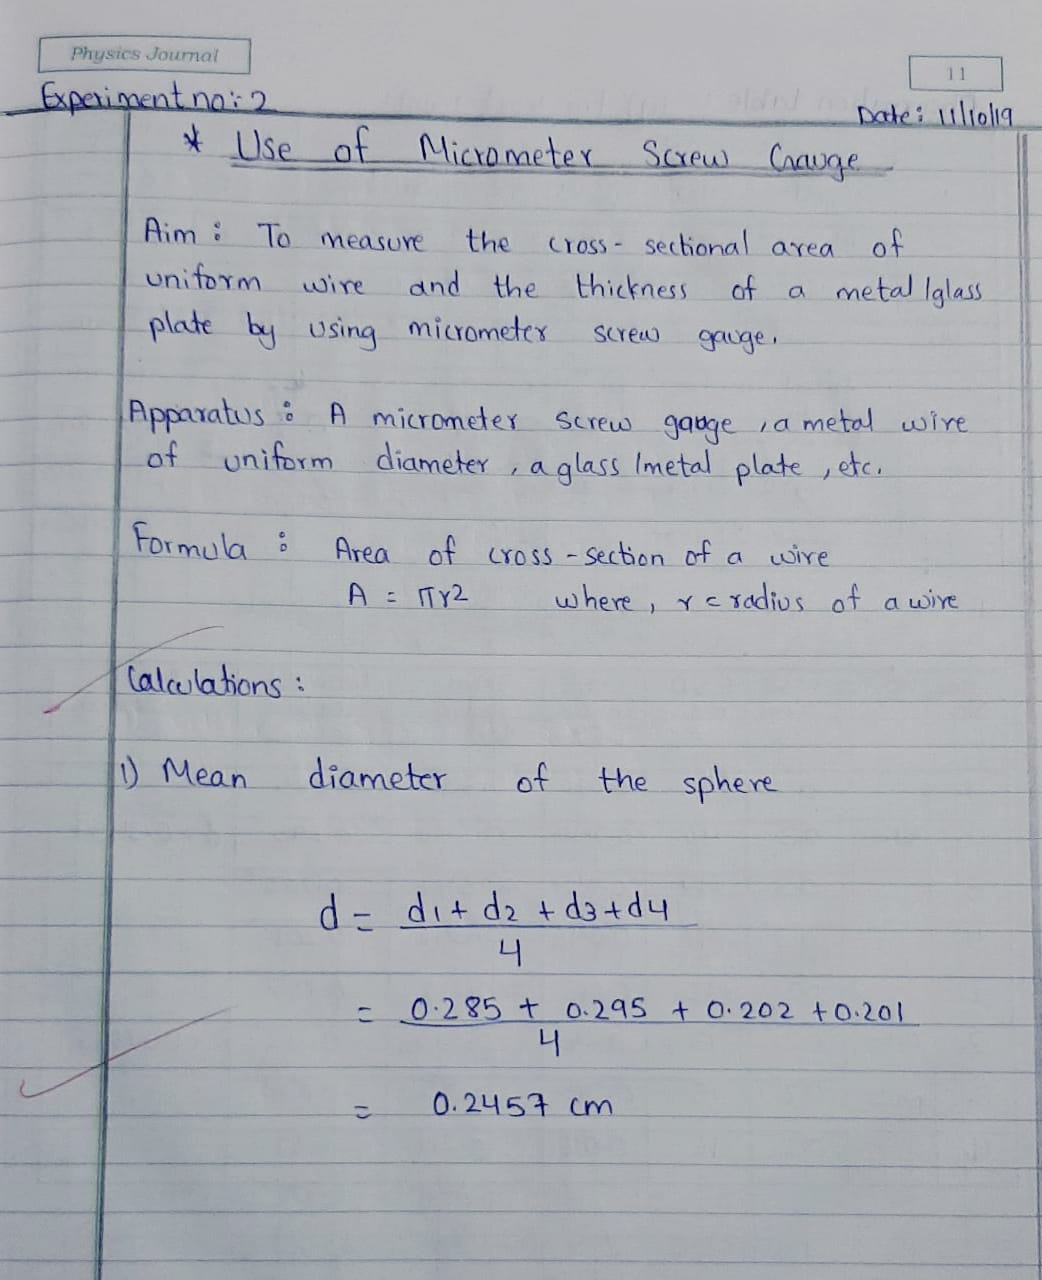 Physics Journal
11
Experiment no: 2
Date: 11/10/19
* Use of Micrometer Screw Gauge
Aim: To measure the cross-sectional area of
uniform wire and the thickness of a metal/glass
plate by using micrometer screw gauge.
Apparatus: A micrometer screw gauge, a metal wire
of uniform diameter, a glass/metal plate, etc.
Formula: Area of cross-section of a wire
A = πr2 where, r = radius of a wire
Calculations:
1) Mean diameter of the sphere
d = d1 + d2 + d3 + d4
4
= 0.285 + 0.295 + 0.202 + 0.201
4
= 0.2457 cm